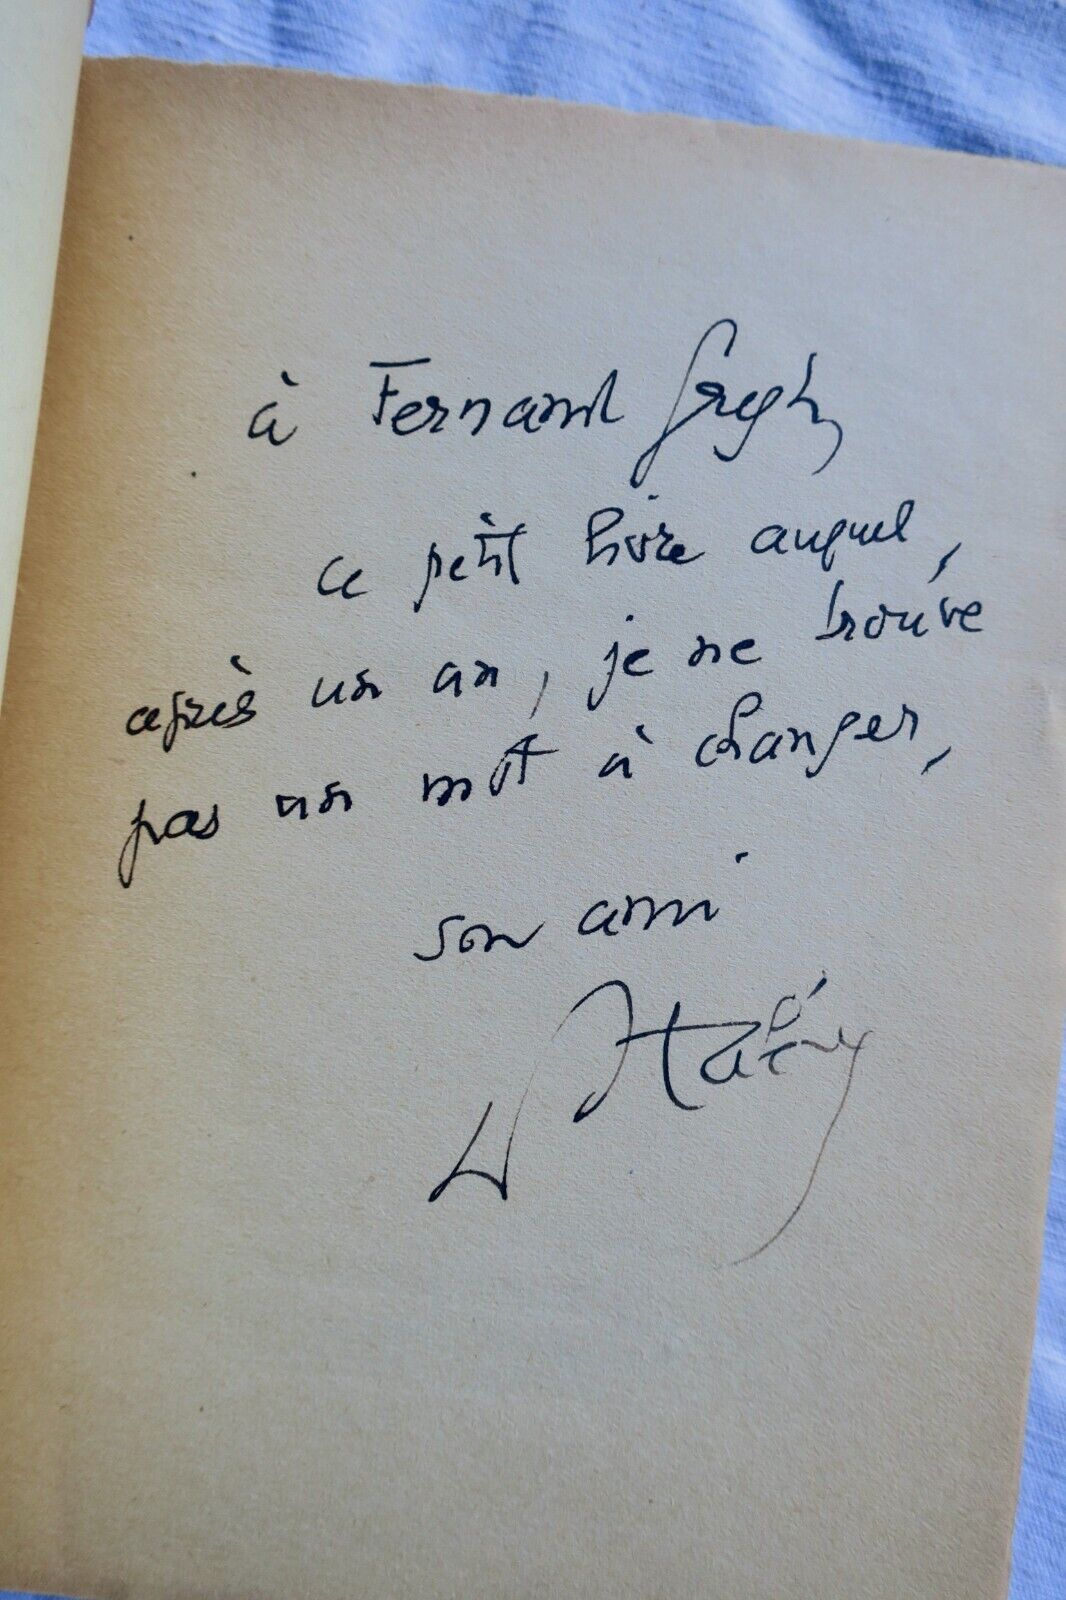 à Fernand Gregh,
ce petit livre auquel,
après un an, je ne trouve
pas un mot à changer,
son ami
D Halévy